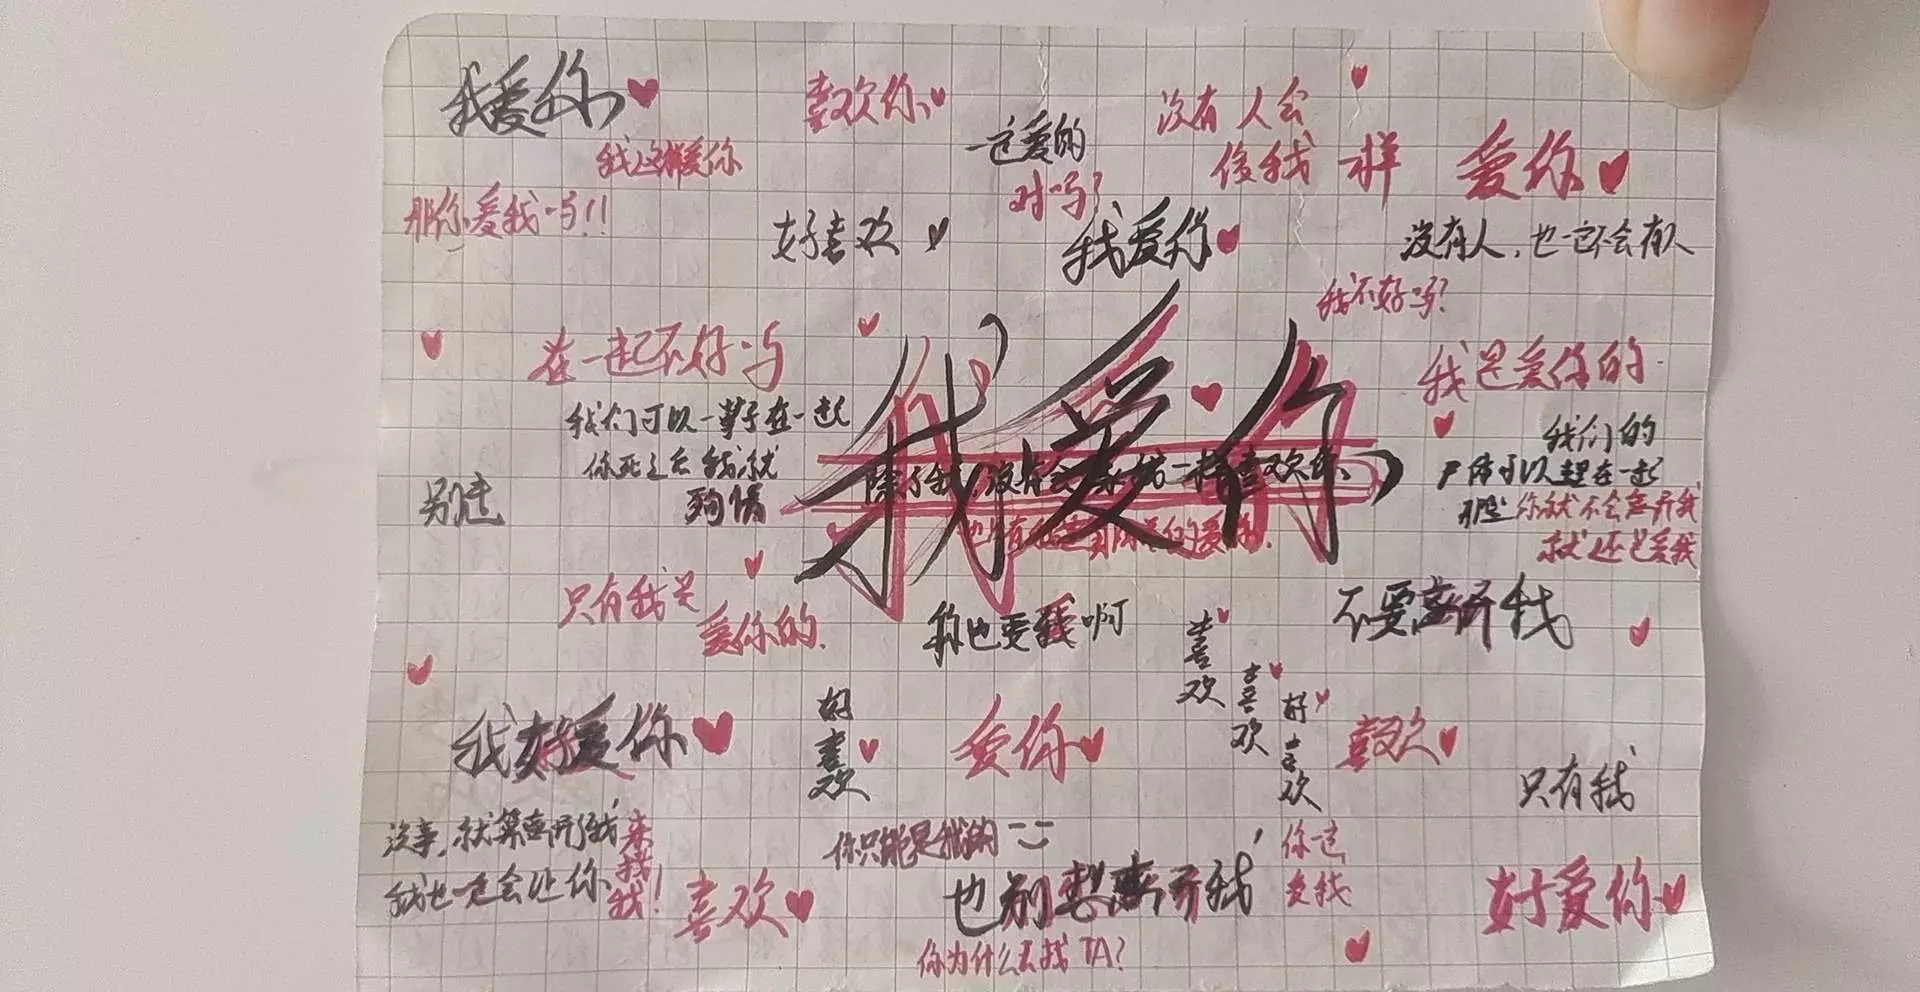 我爱你
喜欢你
没有人会
像我一样
爱你
我这样爱你
一定爱的
对吗?
那你爱我吗!!
好喜欢
我爱你
没有人,也一定不会有人
我不好吗?
在一起不好吗
我是爱你的
我们可以一辈子在一起
你死之后我就
殉情
别走
我爱你
除了我,没有会永结一样喜欢你
我们的
尸体可以埋在一起
那么你就不会离开我
就还是爱我
只有我是
爱你的.
你也要我啊
喜欢
喜欢
好喜欢
不要离开我
我好爱你
好喜欢
爱你
喜欢
只有我
没事,就算离开了我,
我也一定会让你来找我!
喜欢
你只能是我的
也别想离开我
你一定
爱我
好爱你
你为什么去找TA?